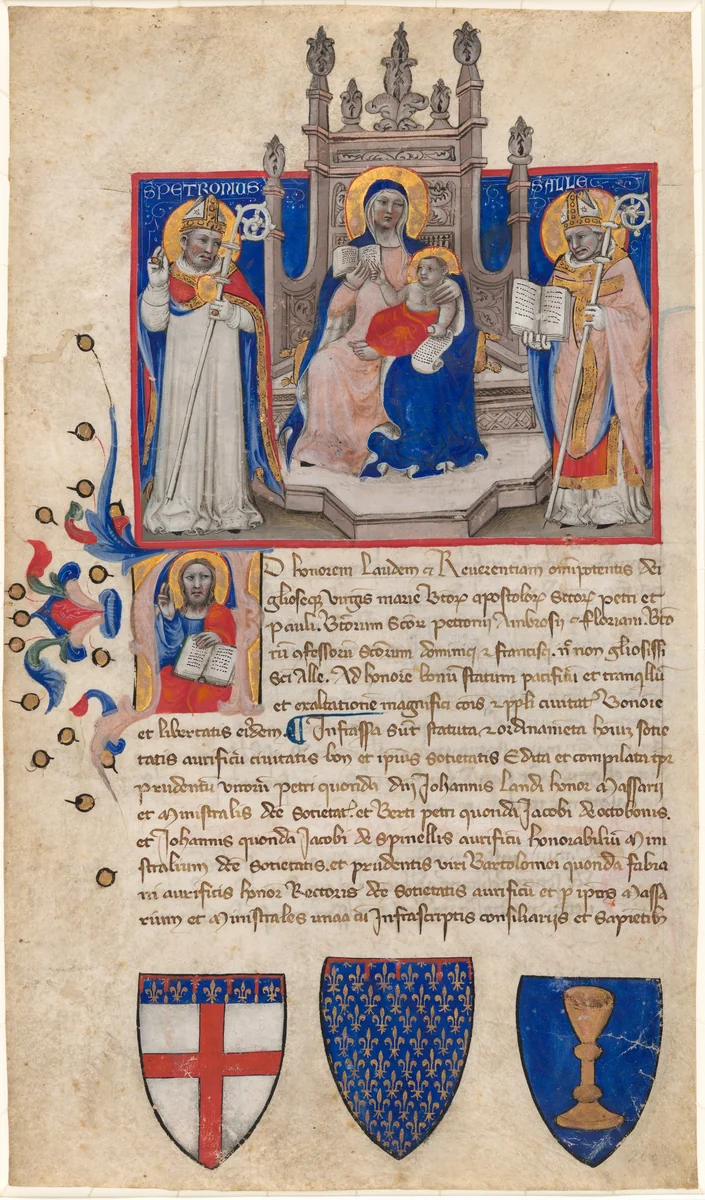 S PETRONIUS
S ALLE
D honorem Laudem et Reuerentiam omipotentis dei
glioseqz uirgis marie Btoꝝ apostoloꝝ Sctoꝝ petri et
pauli. Btorum Scoꝝ petronij Ambrosij et floriani. Bto
ru ofessoru Scorum dominici et francisci. nc non gliosissi
Sci Alle. Ad honore bonu statum pacificu et tranqllu
et exaltatione magnifici cois et ppli ciuitat Bononie
et libertatis eidem. ¶ Infrassa sut statuta et ordinameta huius sotie
tatis aurificu ciuitatis bon et ipius societatis Edita et compilata tpr
prudentu uiroru petri quonda dni Johannis Landi honor Massarij
et Ministralis dce Societat. et Berti petri quonda Jacobi de octobonis.
et Johannis quonda Jacobi de Spinellis aurificu honorabiliu Mini
stralium dce Societatis. et prudentis uiri Bartolomei quonda fabia
ni aurificis honor Rectoris dce Sotietatis aurificu et p ipos Massa
rium et Ministrales unaa cu Infrascriptis consiliarijs et Sapietibz